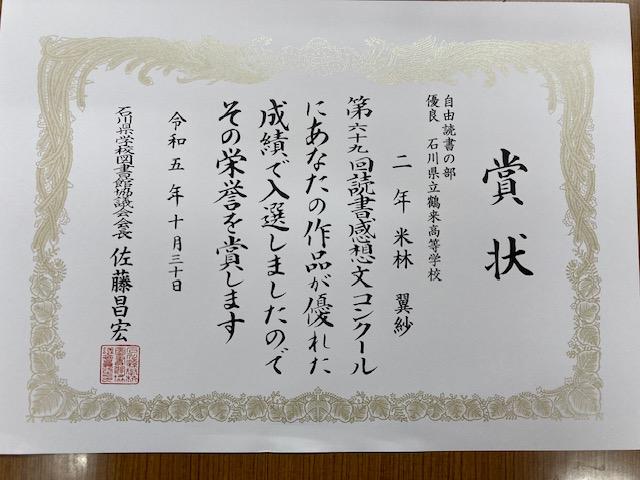 賞状
自由読書の部
優良 石川県立鶴来高等学校
二年 米林 翼紗
第六十九回読書感想文コンクール
にあなたの作品が優れた
成績で入選しましたので
その栄誉を賞します
令和五年十月三十日
石川県学校図書館協議会会長 佐藤昌宏